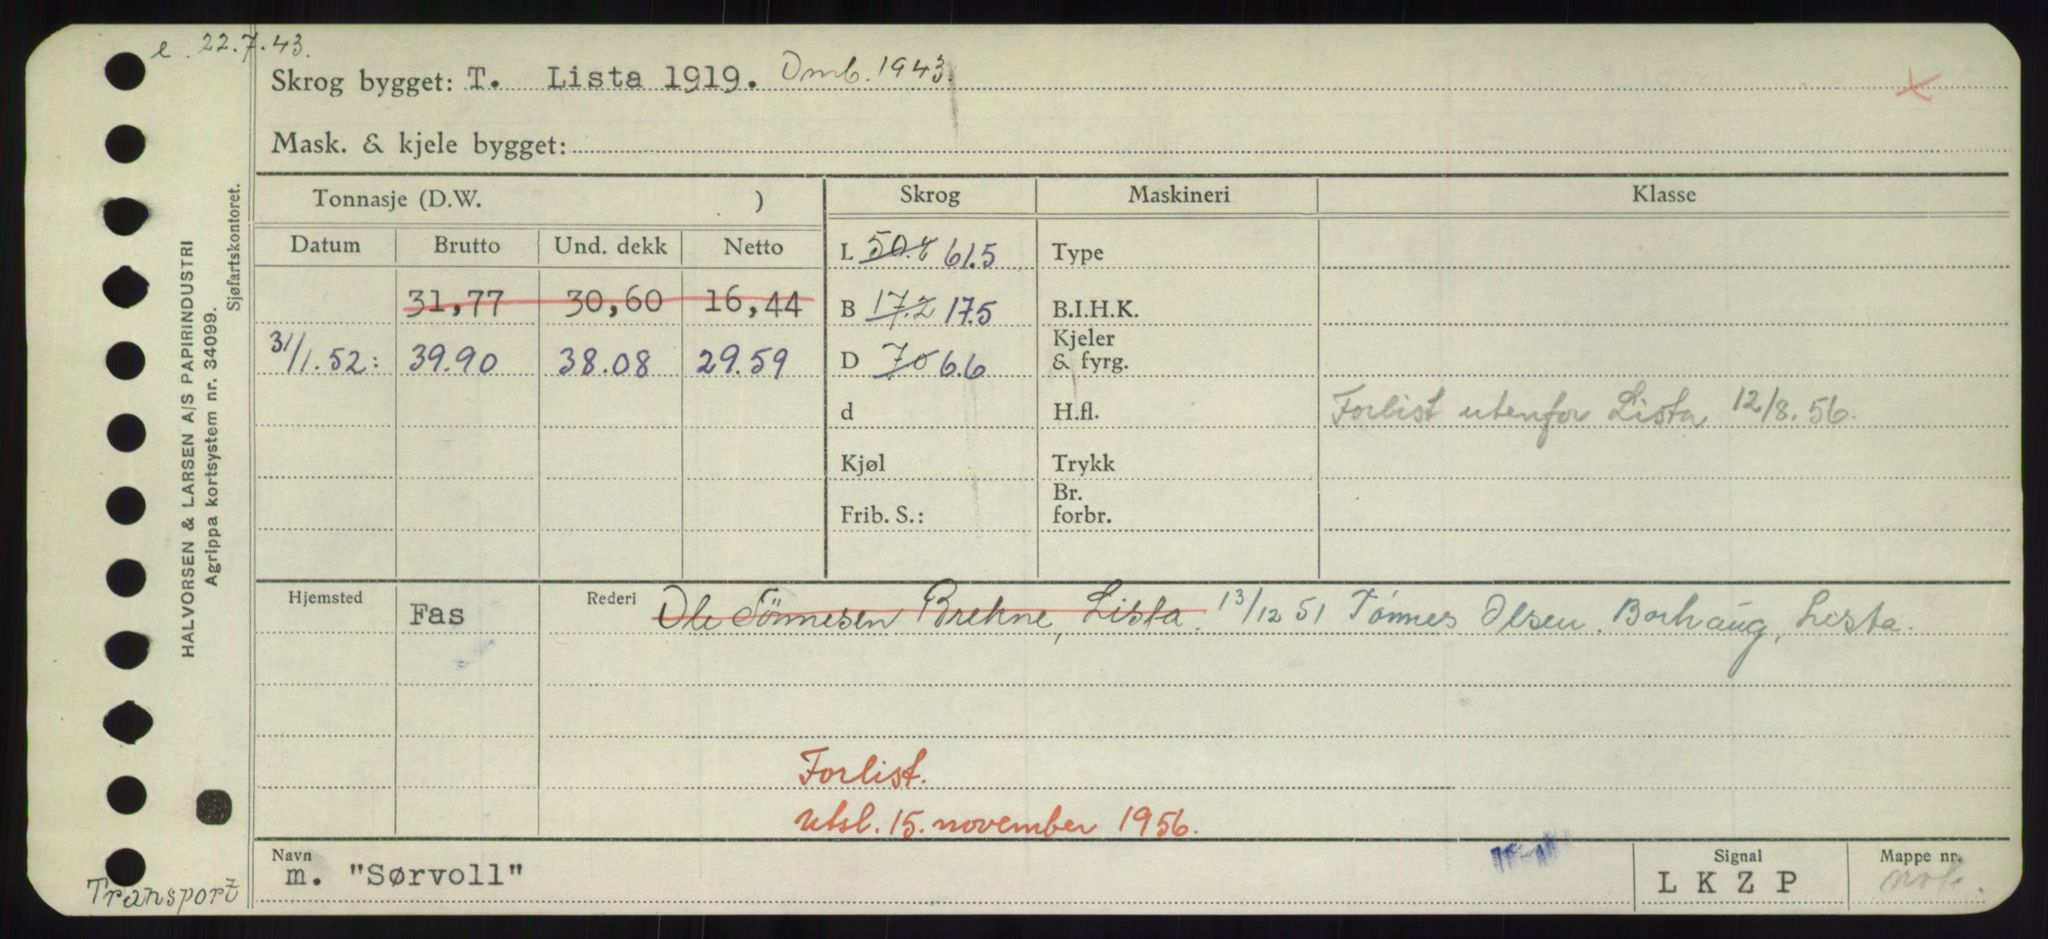 e. 22.7.43.
Skrog bygget: T. Lista 1919. Omb. 1943.
Mask. & kjele bygget:
HALVORSEN & LARSEN A/S PAPIRINDUSTRI
Agrippa kortsystem nr. 34099.
Sjøfartskontoret.
Tonnasje (D.W. ) Skrog Maskineri Klasse
Datum Brutto Und. dekk Netto
L 50.4 61.5 Type
31,77 30,60 16,44 B 17.2 17.5 B.I.H.K.
31/1.52: 39.90 38.08 29.59 D 7.0 6.6 Kjeler & fyrg.
d H.fl. Forlist utenfor Lista 12/8.56.
Kjøl Trykk
Frib. S.: Br. forbr.
Hjemsted Fas Rederi Ole Tönnesen Brekne, Lista. 13/12 51 Tönnes Olsen. Borhaug, Lista.
Forlist.
Utsl. 15. november 1956.
Navn Signal Mappe nr.
m. "Sørvoll" LKZP
Transport